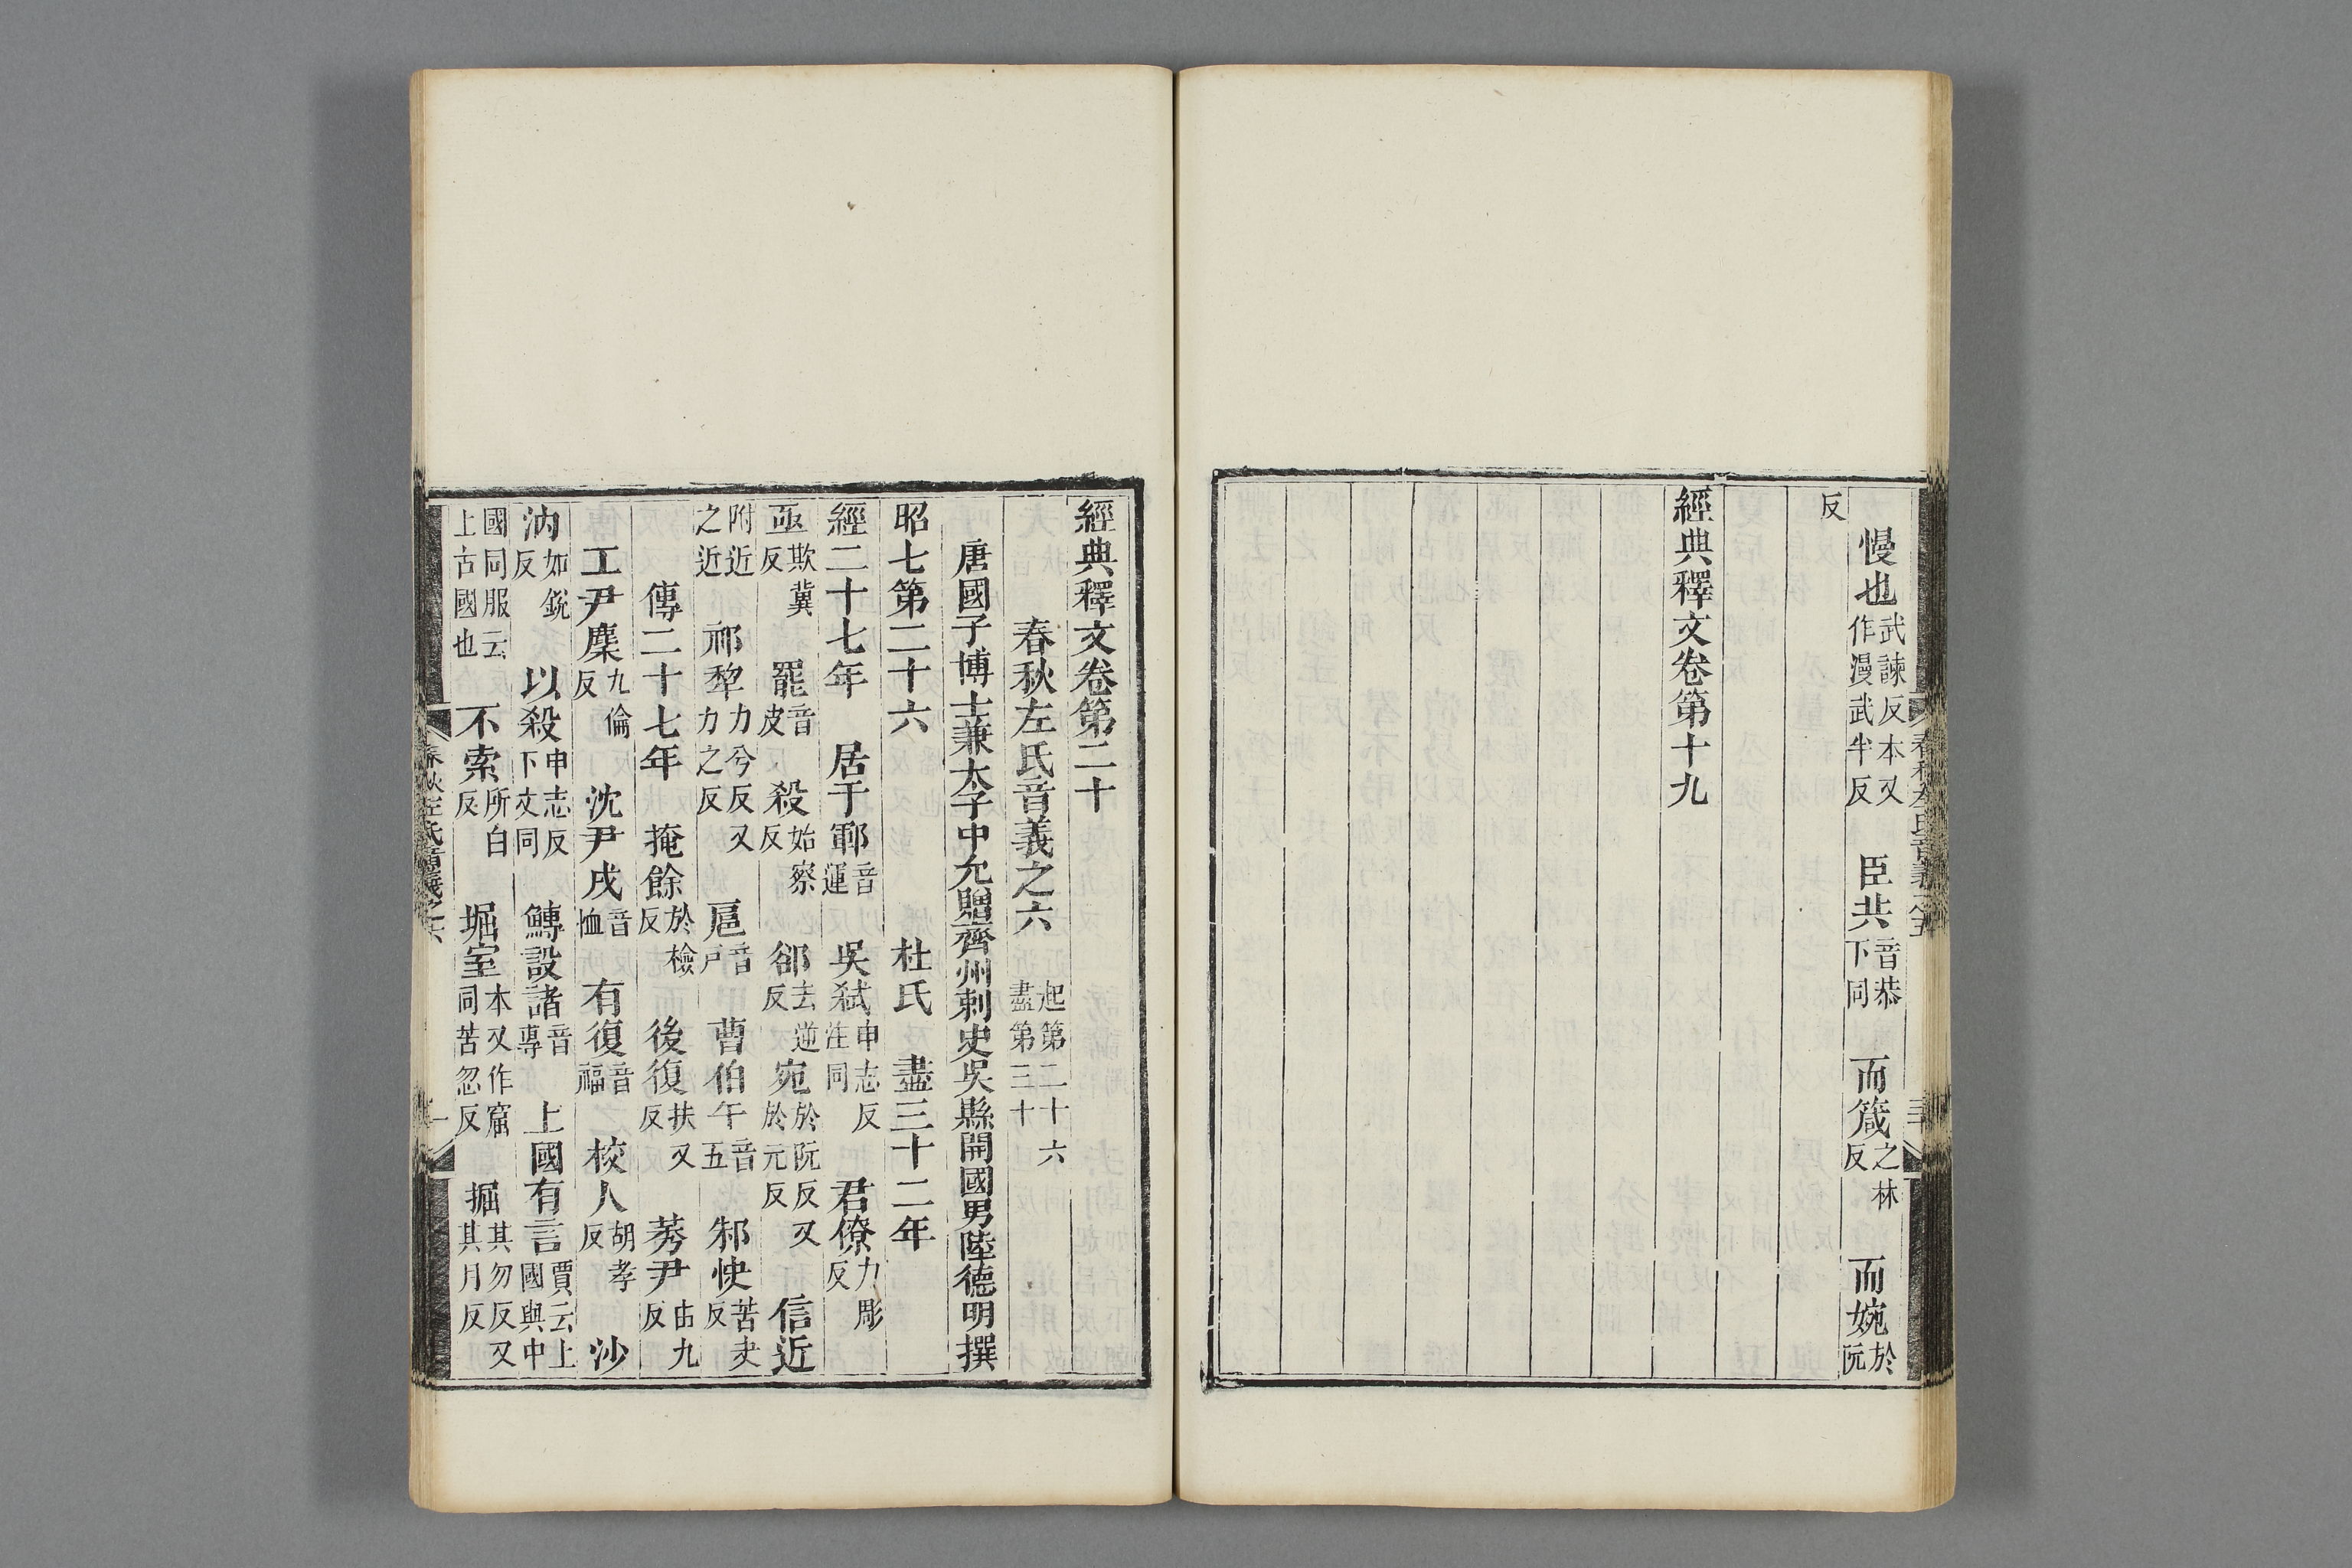 慢也武諫反本又作漫武半反　臣共音恭下同　而箴之林反　而婉於阮
反
經典釋文卷第十九
經典釋文卷第二十
春秋左氏音義之六起第二十六盡第三十
唐國子博士兼太子中允贈齊州刺史吳縣開國男陸德明撰
昭七第二十六　杜氏　盡三十二年
經二十七年　居于鄆音運　吳弑申志反注同　君僚力彫反
亟欺冀反　罷音皮　殺始察反　郤去逆反　宛於阮反又於元反　信近
附近之近　祁犂力兮反又力之反　扈音戶　曹伯午音五　邾快苦夬反
傳二十七年　掩餘於檢反　後復扶又反　莠尹由九反
工尹麇九倫反　沈尹戌音恤　有復音福　校人胡孝反　沙
汭如銳反　以殺申志反下文同　鱄設諸音專　上國有言賈云上國與中
國同服云上古國也　不索所白反　堀室本又作窟同苦忽反　掘其勿反又其月反
春秋左氏音義之六　一